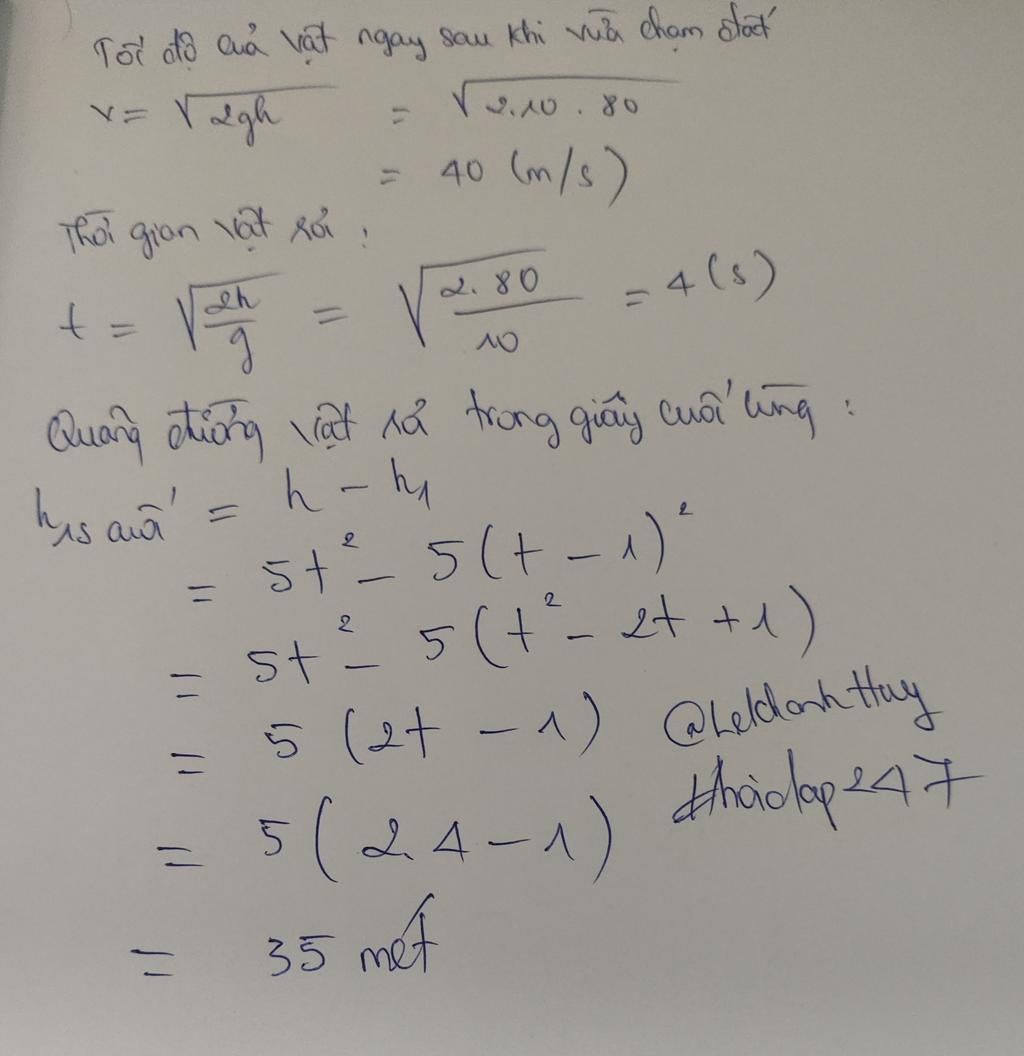 Tốc độ của vật ngay sau khi vừa chạm đất
v = √2gh = √2.10.80
= 40 (m/s)
Thời gian vật rơi :
t = √2h/g = √2.80/10 = 4 (s)
Quãng đường vật rơi trong giây cuối cùng :
h1s cuối = h - h1
= 5t² - 5(t - 1)²
= 5t² - 5(t² - 2t + 1)
= 5 (2t - 1) @LeKhanhHuy
= 5 (2.4 - 1) #hoidap247
= 35 mét